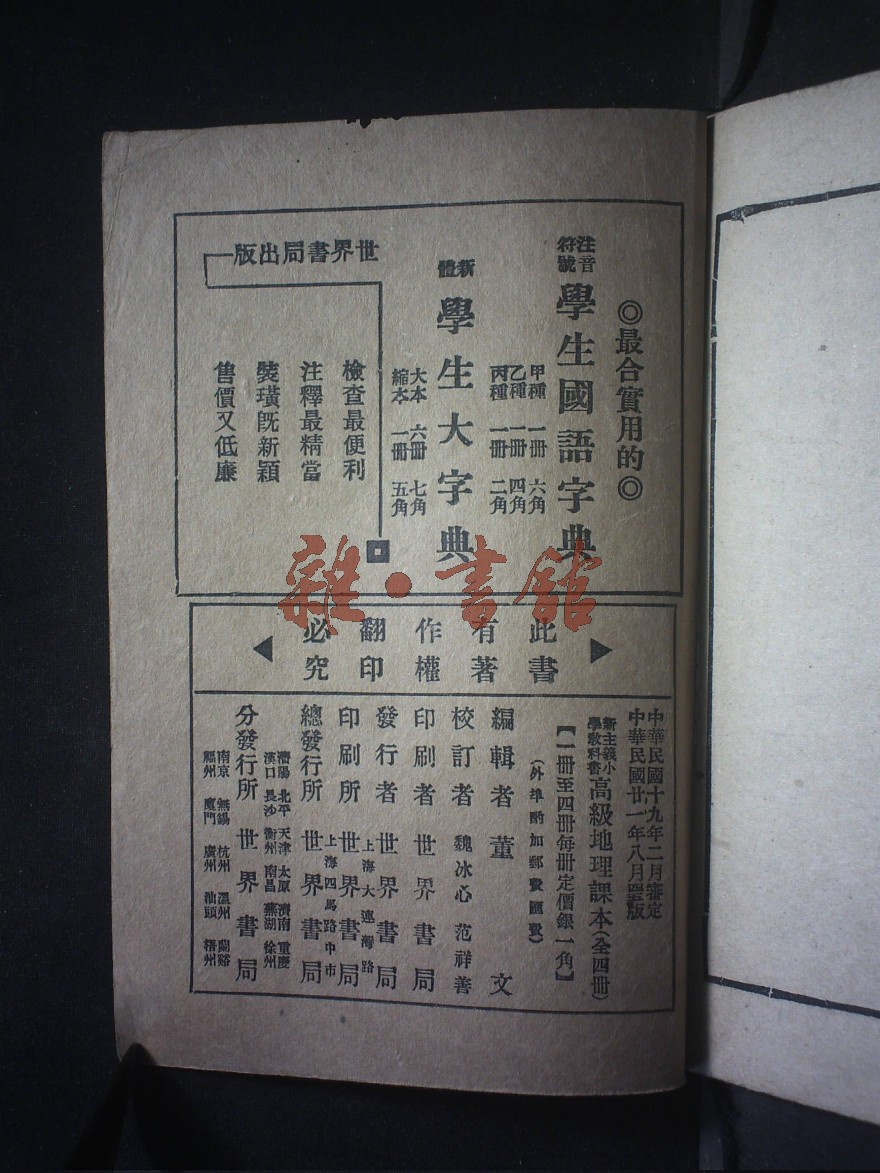 ◎最合實用的◎
注音符號
學生國語字典
甲種 一冊 六角
乙種 一冊 四角
丙種 一冊 二角
新體
學生大字典
大本 六冊 七角
縮本 一冊 五角
世界書局出版
檢查最便利
注釋最精當
裝璜既新穎
售價又低廉
此書
有著
作權
翻印
必究
中華民國十九年二月審定
中華民國廿一年八月
新主義小學教科書
高級地理課本(全四冊)
【一冊至四冊每冊定價銀一角】
(外埠酌加郵費匯費)
編輯者 董文
校訂者 魏冰心 范祥善
印刷者 世界書局
發行者 世界書局
上海大連灣路
印刷所 世界書局
上海四馬路中市
總發行所 世界書局
瀋陽 北平 天津 太原 濟南 重慶
漢口 長沙 衡州 南昌 蕪湖 徐州
分發行所 世界書局
南京 無錫 杭州 溫州 蘭谿
福州 廈門 廣州 汕頭 梧州
雜·書館